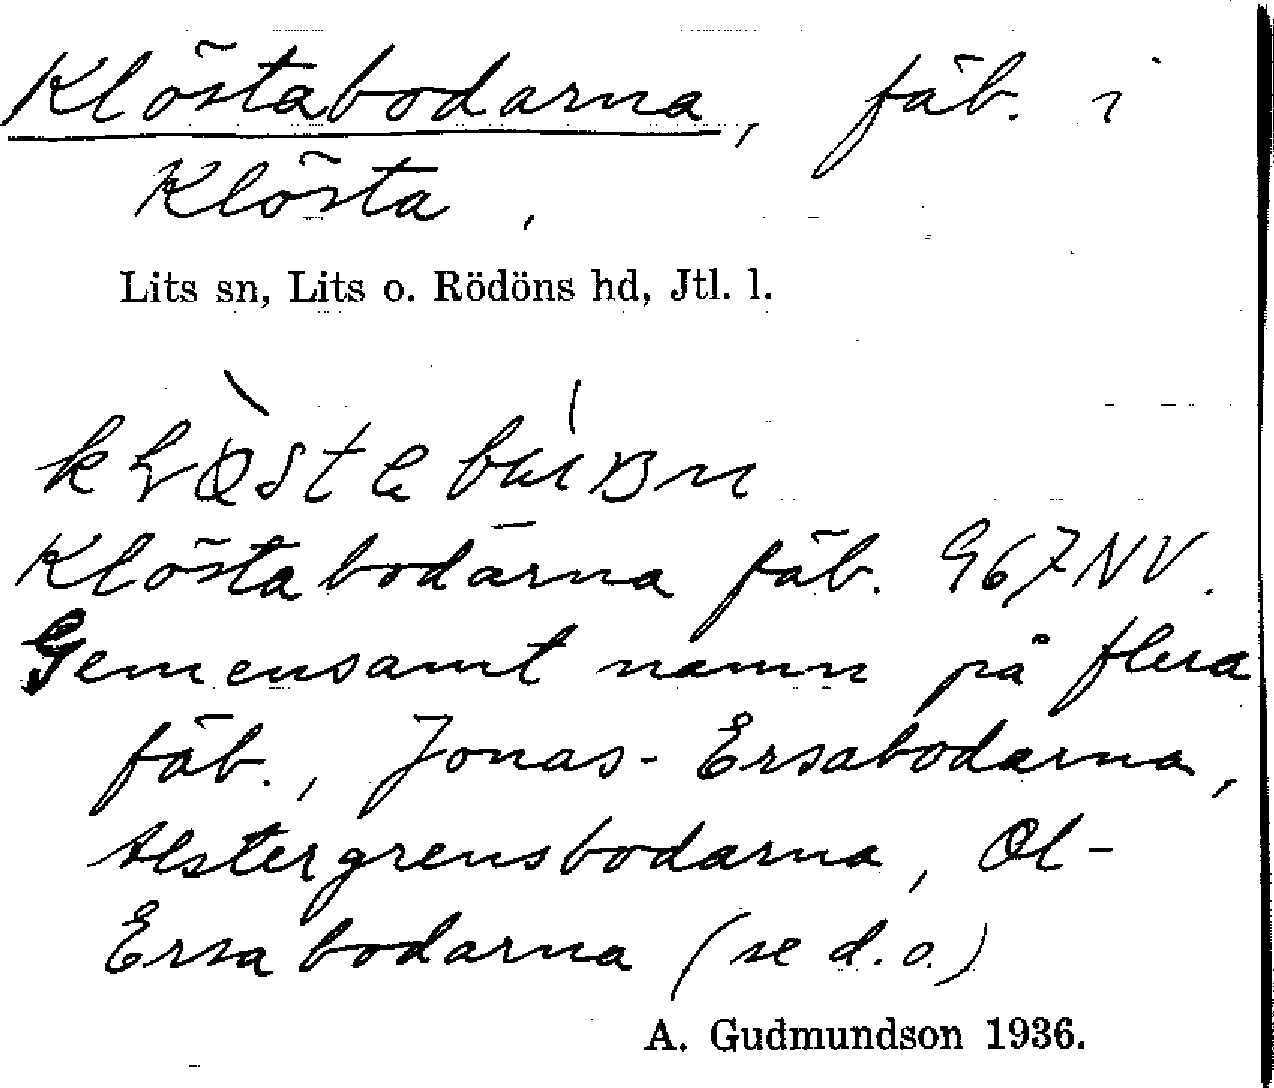 Klöstabodarna, fäb. i
Klösta,
Lits sn, Lits o. Rödöns hd, Jtl. l.
Klöstabodarna fäb. 967NV.
Gemensamt namn på flera
fäb., Jonas-Ersabodarna,
Alstergrensbodarna, Ol-
Ersabodarna (se d.o.)
A. Gudmundson 1936.